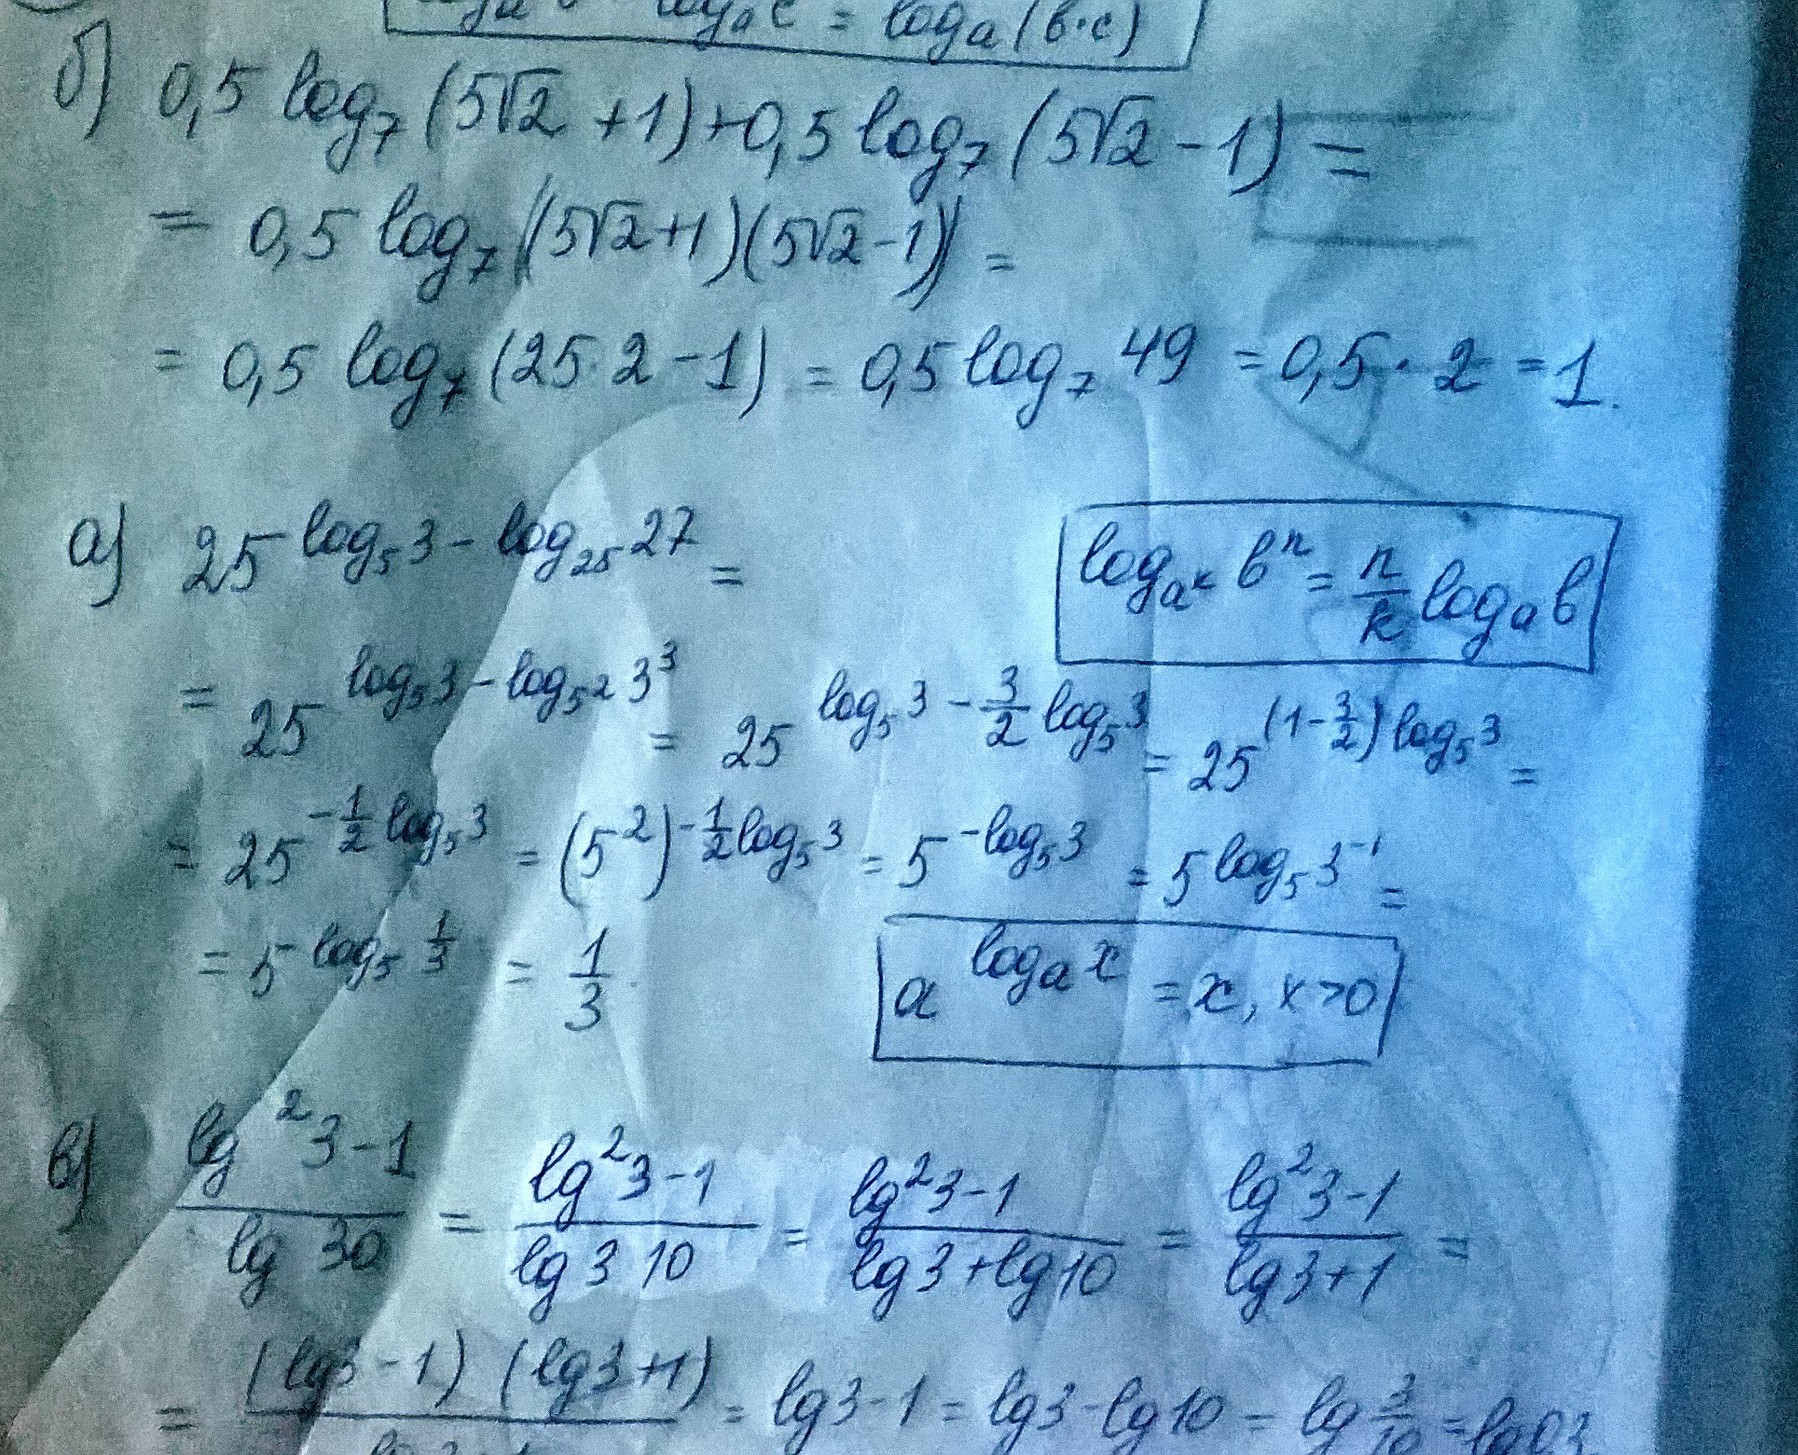 = logₐ(b·c)
б) 0,5 log₇(5√2 +1)+0,5 log₇(5√2 -1) =
= 0,5 log₇((5√2+1)(5√2-1)) =
= 0,5 log₇(25·2-1) = 0,5 log₇ 49 = 0,5 · 2 = 1.
а) 25^(log₅3 - log₂₅27) =
log_(a^k) b^n = n/k logₐ b
= 25^(log₅3 - log_(5^2) 3^3) = 25^(log₅3 - 3/2 log₅3) = 25^((1-3/2) log₅3) =
= 25^(-1/2 log₅3) = (5^2)^(-1/2 log₅3) = 5^(-log₅3) = 5^(log₅3^(-1)) =
= 5^(log₅ 1/3) = 1/3.
a^(logₐ x) = x, x>0
в) (lg²3-1)/(lg 30) = (lg²3-1)/(lg 3 10) = (lg²3-1)/(lg3+lg10) = (lg²3-1)/(lg3+1) =
= (lg3-1) (lg3+1) = lg3-1 = lg3-lg10 = lg 3/10 = lg0,3